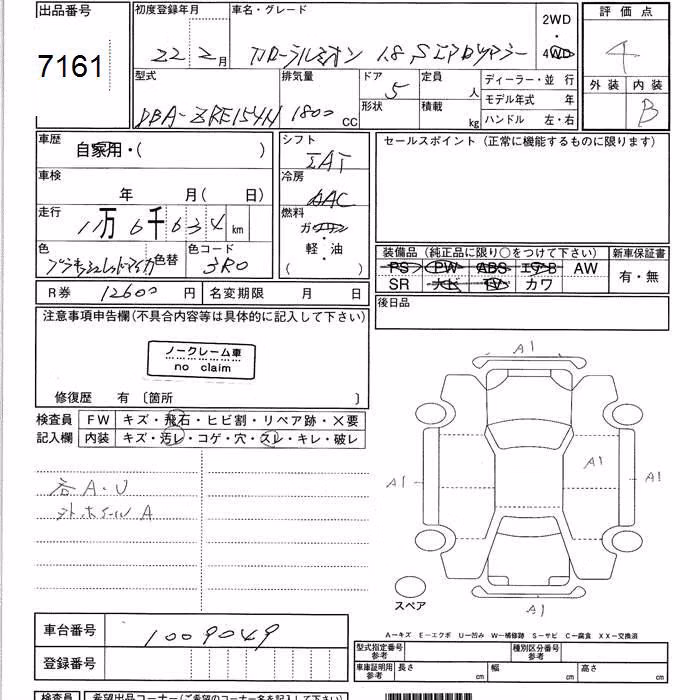 出品番号 初度登録年月 車名・グレード 2WD 評価点
7161 22 2月 カローラルミオン 1.8 S エアロツアラー 4WD 4
型式 排気量 ドア 5 定員 人 ディーラー・並 行 外装 内装
形状 積載 kg モデル年式 年 B
DBA-ZRE154N 1800 CC ハンドル 左・右
車歴 自家用・( ) シフト IAT セールスポイント (正常に機能するものに限ります)
車検 年 月( 日) 冷房 AAC
走行 11万6千634km 燃料 ガソリン・軽・油 ( )
色 色替 色コード 3R0
装備品 (純正品に限り○をつけて下さい) 新車保証書
PS PW ABS エアB AW 有・無
SR ナビ TV カワ
R券 12600 円 名変期限 月 日 後日品
注意事項申告欄(不具合内容等は具体的に記入して下さい)
ノークレーム車
no claim
修復歴 有 〔箇所 〕
検査員 FW キズ・飛石・ヒビ割・リペア跡・X要
記入欄 内装 キズ・汚レ・コゲ・穴・スレ・キレ・破レ
各A・U
外ホイールA
A1
A1 A1 A1
A1
スペア
A-キズ E-エクボ U-凹み W-補修跡 S-サビ C-腐食 XX-交換済
車台番号 1009049
登録番号
型式指定番号 参考 種別区分番号 参考
車庫証明用 参考 長さ cm 幅 cm 高さ cm
検査員 希望出品コーナー(ご希望のコーナー名を記入して下さい)